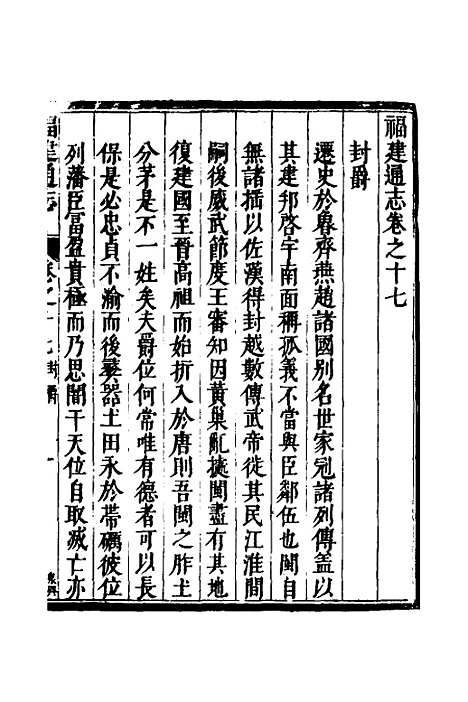 福建通志卷之十七
封爵
遷史於魯齊燕趙諸國別名世家冠諸列傳蓋以
其建邦啓宇南面稱孤義不當與臣鄰伍也閩自
無諸搖以佐漢得封越數傳武帝徙其民江淮間
嗣後威武節度王審知因黃巢亂據閩盡有其地
復建國至晉高祖而始折入於唐則吾閩之胙土
分茅是不一姓矣夫爵位何常唯有德者可以長
保是必忠貞不渝而後彝器土田永於帶礪彼位
列藩臣富盈貴極而乃思闇干天位自取滅亡亦
福建通志
卷之十七 封爵 一